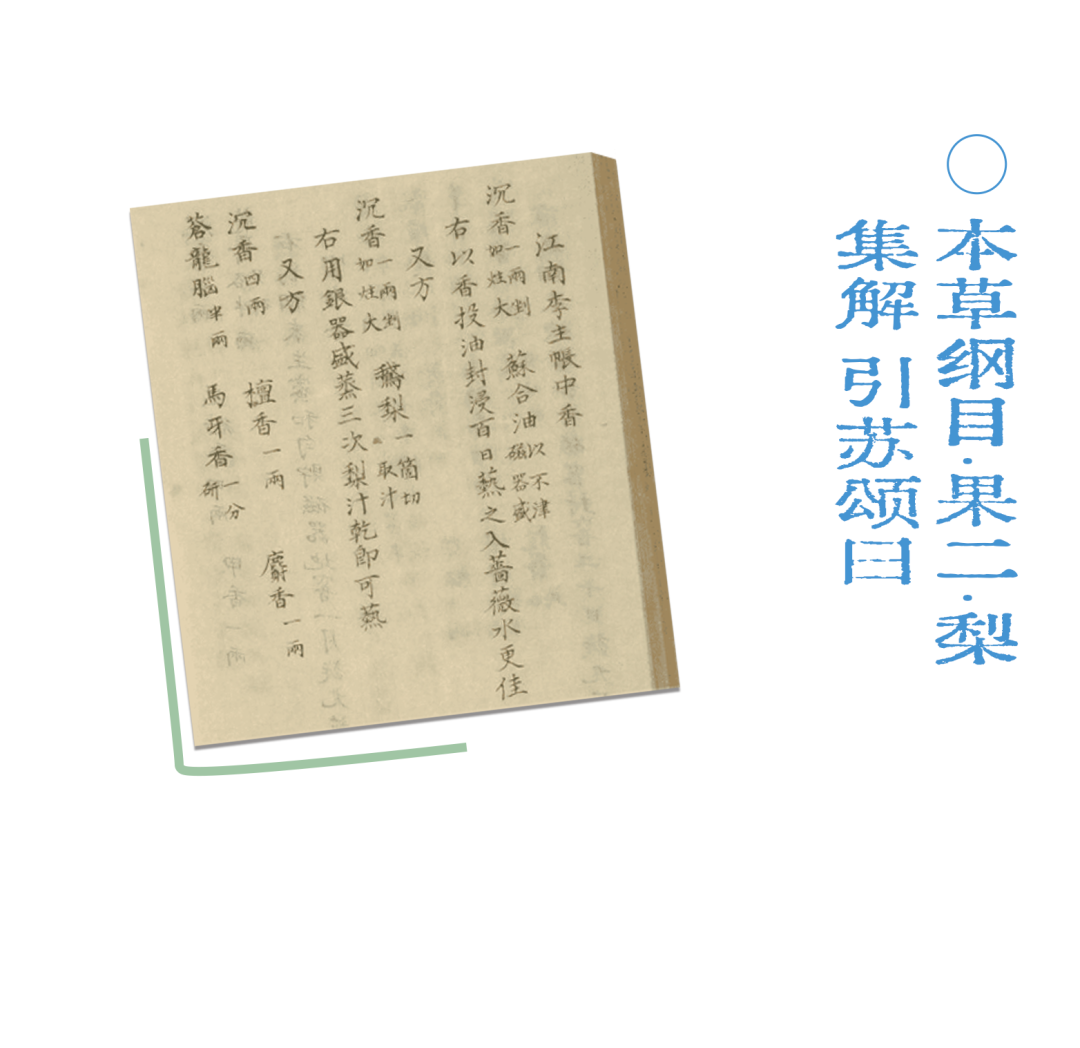 本草纲目·果二·梨
集解 引苏颂曰
江南李主帳中香
沉香一兩剉如炷大 蘇合油以不津磁器盛
右以香投油封浸百日爇之入薔薇水更佳
又方
沉香一兩剉如炷大 鵝梨一箇切取汁
右用銀器盛蒸三次梨汁乾即可爇
又方
沉香四兩 檀香一兩 麝香一兩
蒼龍腦半兩 馬牙香一分研